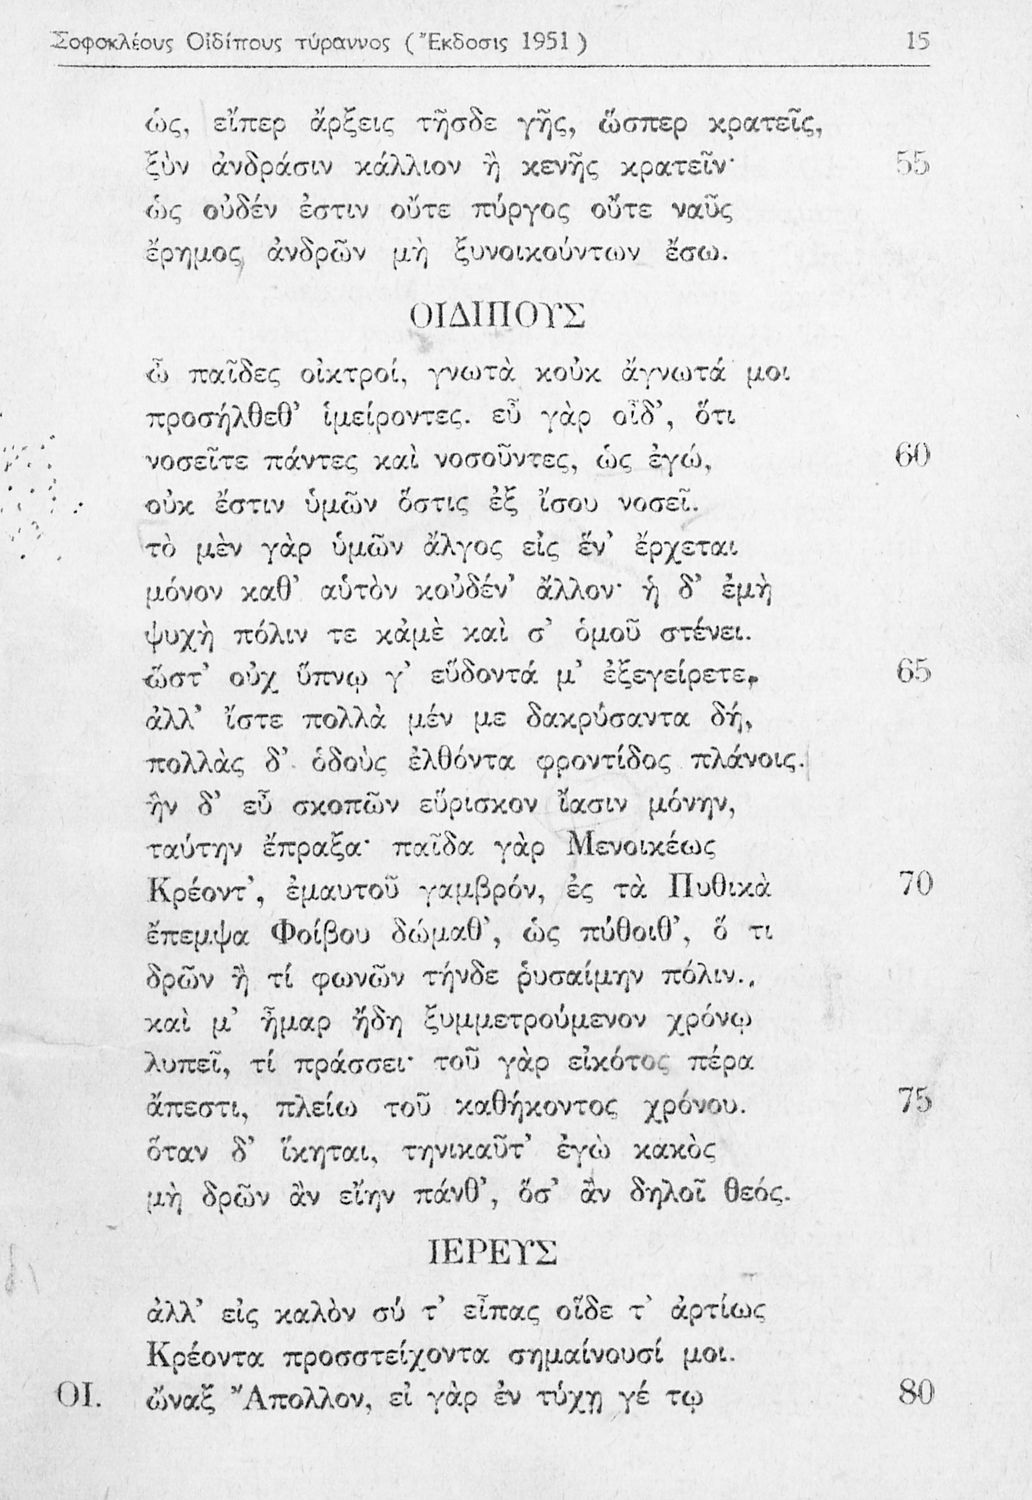 Σοφοκλέους Οἰδίπους τύραννος (Ἔκδοσις 1951) 15
ὡς, εἴπερ ἄρξεις τῆσδε γῆς, ὥσπερ κρατεῖς,
ξὺν ἀνδράσιν κάλλιον ἢ κενῆς κρατεῖν· 55
ὡς οὐδέν ἐστιν οὔτε πύργος οὔτε ναῦς
ἔρημος ἀνδρῶν μὴ ξυνοικούντων ἔσω.
ΟΙΔΙΠΟΥΣ
ὦ παῖδες οἰκτροί, γνωτὰ κοὐκ ἄγνωτά μοι
προσήλθεθ’ ἱμείροντες. εὖ γὰρ οἶδ’, ὅτι
νοσεῖτε πάντες καὶ νοσοῦντες, ὡς ἐγώ, 60
οὐκ ἔστιν ὑμῶν ὅστις ἐξ ἴσου νοσεῖ.
τὸ μὲν γὰρ ὑμῶν ἄλγος εἰς ἕν’ ἔρχεται
μόνον καθ’ αὑτὸν κοὐδέν’ ἄλλον· ἡ δ’ ἐμὴ
ψυχὴ πόλιν τε κἀμὲ καὶ σ’ ὁμοῦ στένει.
ὥστ’ οὐχ ὕπνῳ γ’ εὕδοντά μ’ ἐξεγείρετε, 65
ἀλλ’ ἴστε πολλὰ μέν με δακρύσαντα δή,
πολλὰς δ’ ὁδοὺς ἐλθόντα φροντίδος πλάνοις.
ἣν δ’ εὖ σκοπῶν εὕρισκον ἴασιν μόνην,
ταύτην ἔπραξα· παῖδα γὰρ Μενοικέως
Κρέοντ’, ἐμαυτοῦ γαμβρόν, ἐς τὰ Πυθικὰ 70
ἔπεμψα Φοίβου δώμαθ’, ὡς πύθοιθ’, ὅ τι
δρῶν ἢ τί φωνῶν τήνδε ῥυσαίμην πόλιν.
καί μ’ ἦμαρ ἤδη ξυμμετρούμενον χρόνῳ
λυπεῖ, τί πράσσει· τοῦ γὰρ εἰκότος πέρα
ἄπεστι, πλείω τοῦ καθήκοντος χρόνου. 75
ὅταν δ’ ἵκηται, τηνικαῦτ’ ἐγὼ κακὸς
μὴ δρῶν ἂν εἴην πάνθ’, ὅσ’ ἂν δηλοῖ θεός.
ΙΕΡΕΥΣ
ἀλλ’ εἰς καλὸν σύ τ’ εἶπας οἵδε τ’ ἀρτίως
Κρέοντα προσστείχοντα σημαίνουσί μοι.
ΟΙ. ὦναξ Ἄπολλον, εἰ γὰρ ἐν τύχῃ γέ τῳ 80